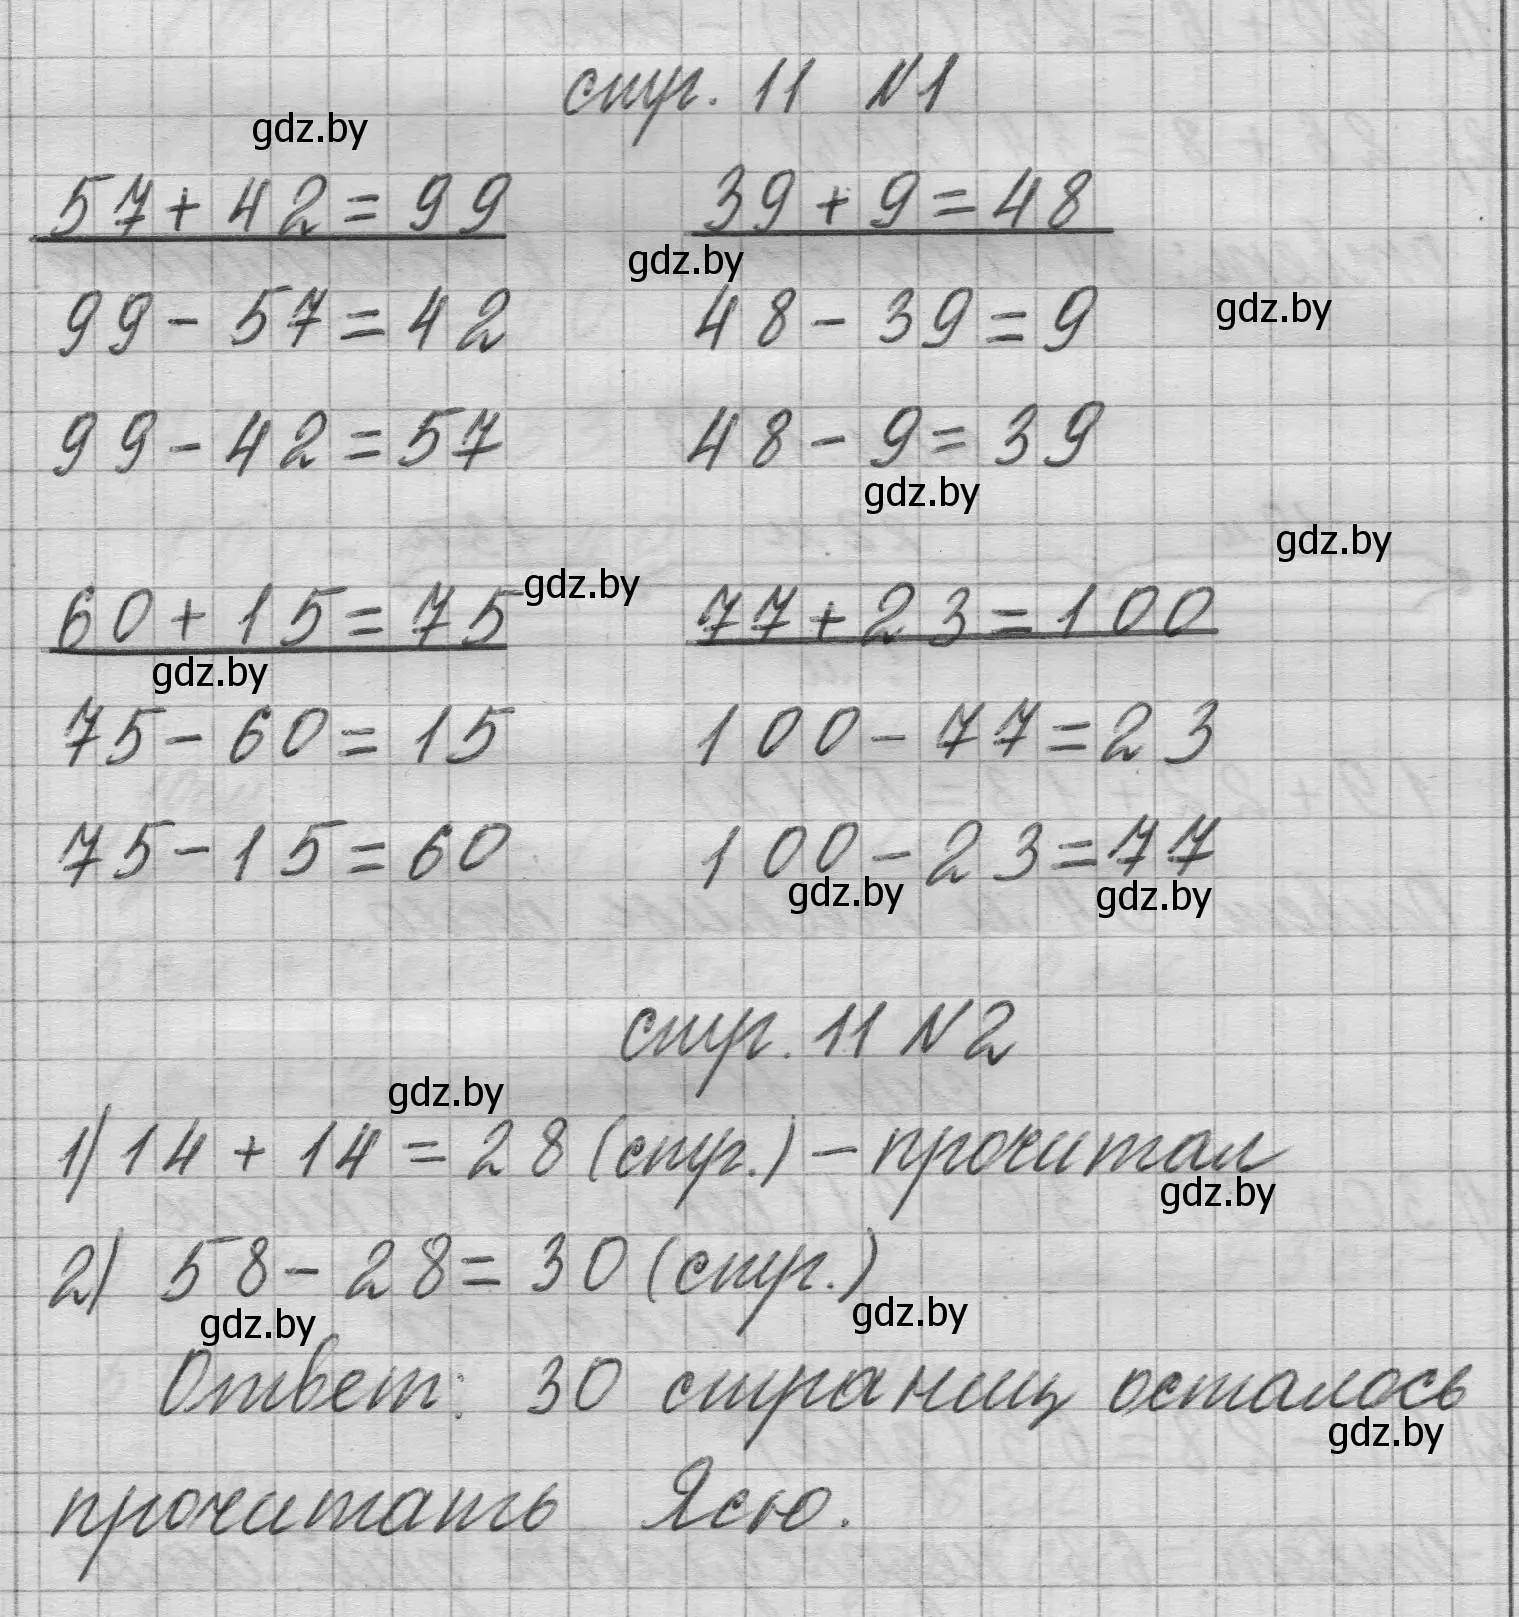 стр. 11 №1
gdz.by
57+42=99 39+9=48
gdz.by
99-57=42 48-39=9
gdz.by
99-42=57 48-9=39
gdz.by
gdz.by
gdz.by
60+15=75 77+23=100
gdz.by
75-60=15 100-77=23
75-15=60 100-23=77
gdz.by gdz.by
стр. 11 №2
gdz.by
1) 14+14=28 (стр.) – прочитал
gdz.by
2) 58-28=30 (стр.)
gdz.by gdz.by
Ответ: 30 страниц осталось
gdz.by
прочитать Ясю.